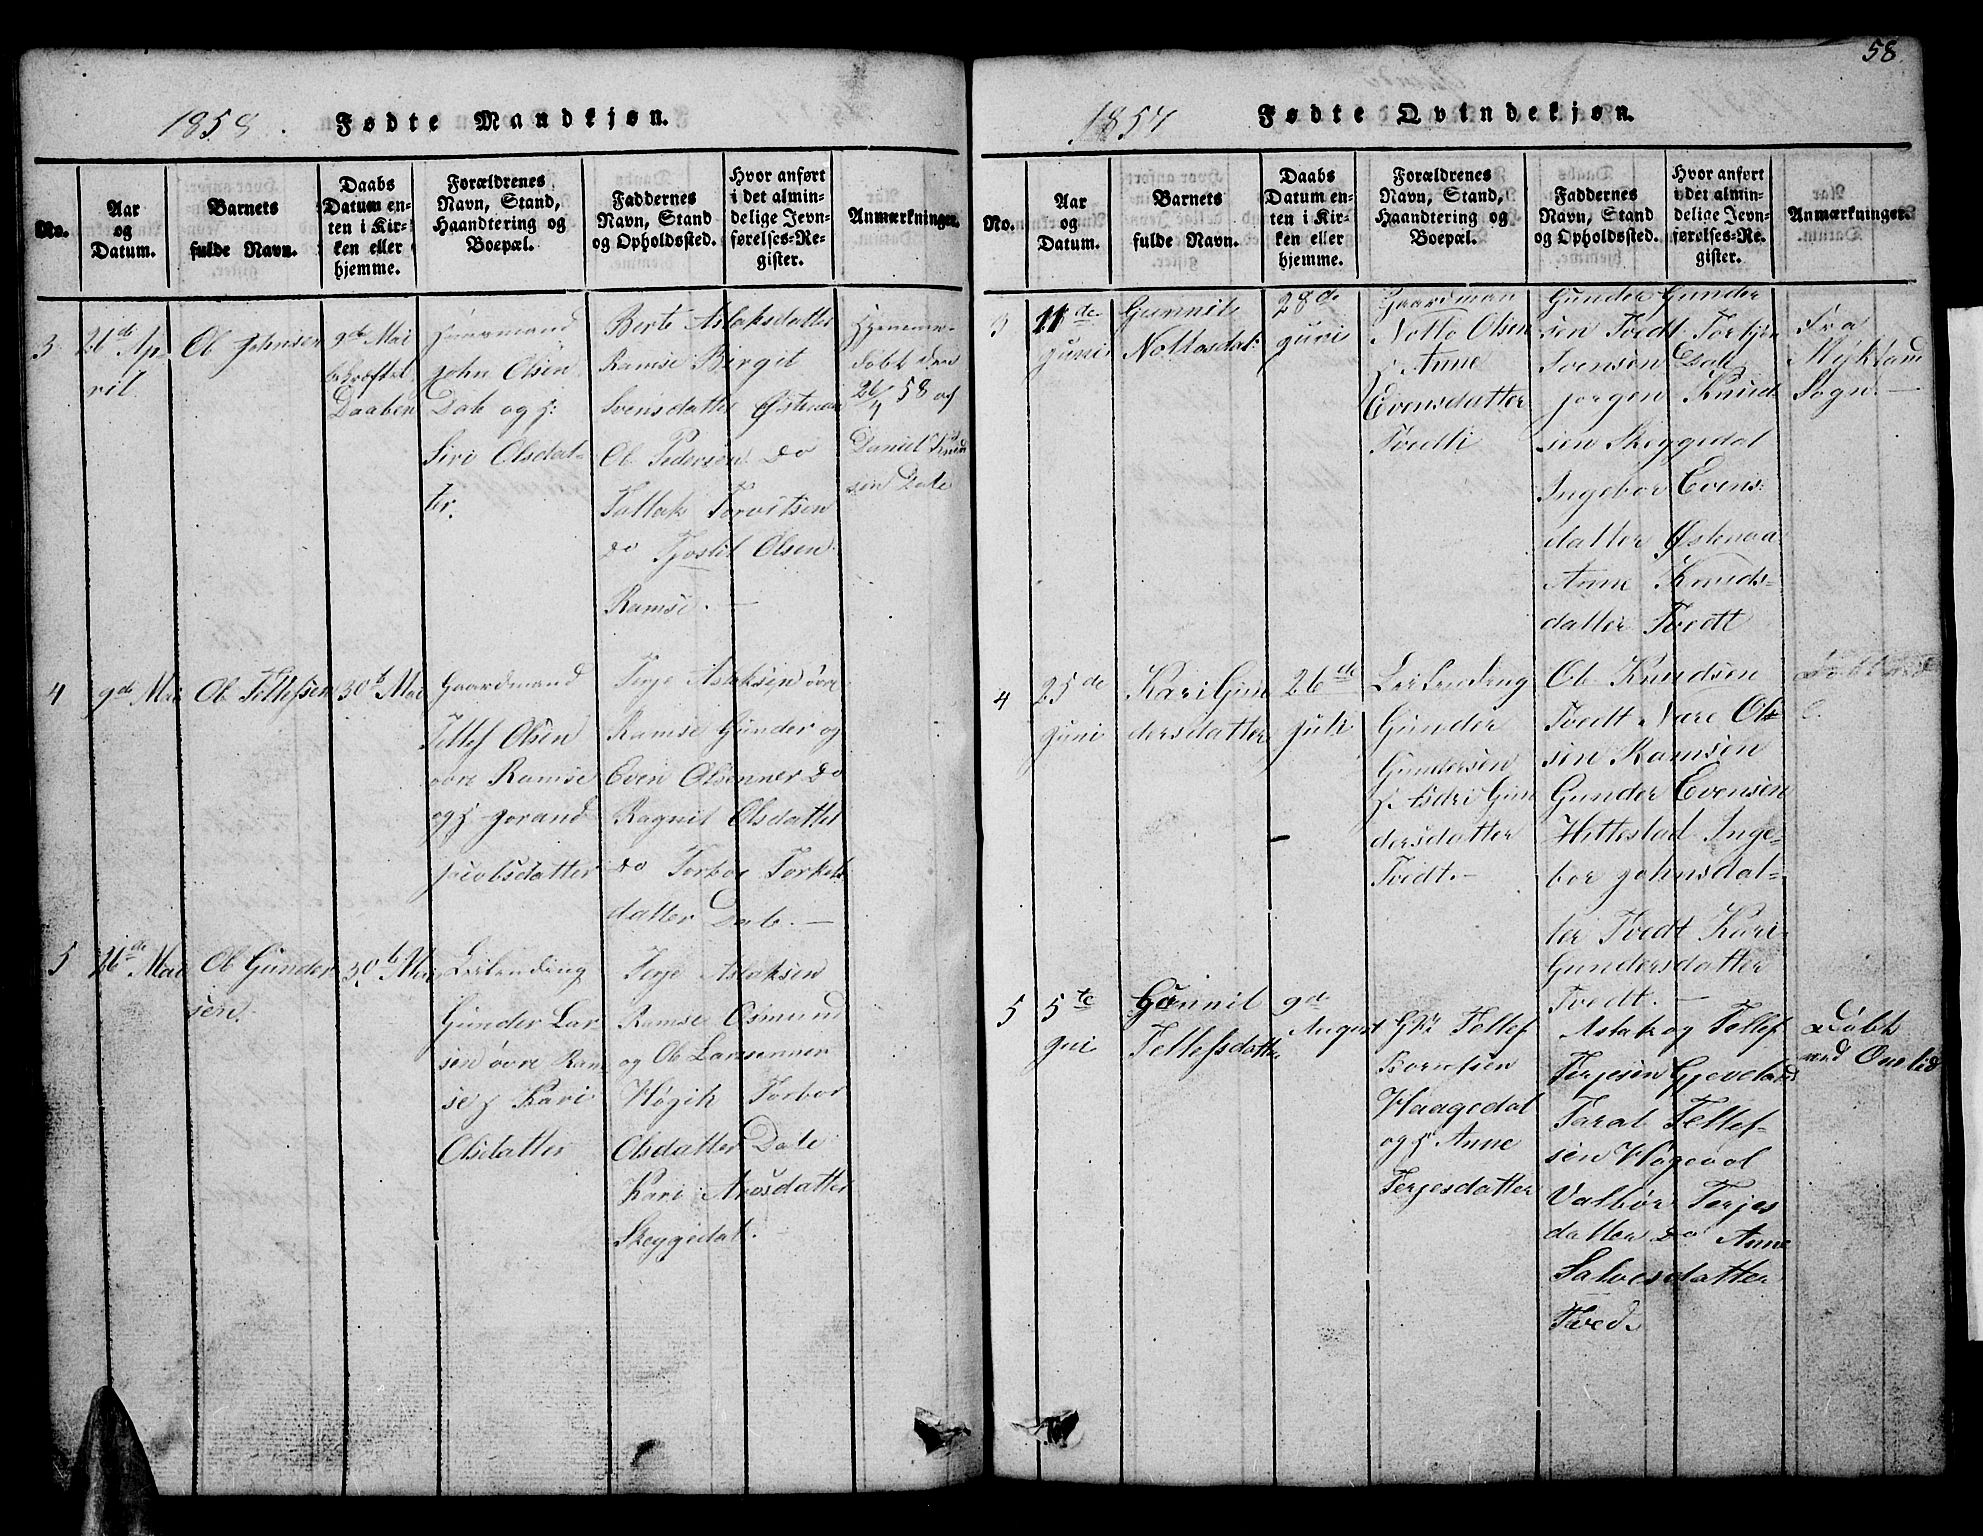 58
1858. Fødte Mandkjøn.
No.
Aar
og
Datum.
Barnets
fulde Navn.
Daabs
Datum en-
ten i Kir-
ken eller
hjemme.
Forældrenes
Navn, Stand,
Haandtering og
Boepæl.
Faddernes
Navn, Stand
og Opholdssted.
Hvor anført
i det almin-
delige Jevn-
førelses-Re-
gister.
Anmærkninger.
3
26de Ap
ril
Ole Johnsen
9de Mai
Daaben
Gaarmand
John Olsen
Dale og H:
Siri Olsdat-
ter.
Berte Aslaksdatter
Ramse Birgit
Svensdatter Østenaa
Ole Pedersen do
Tallak Torvitsen
do Tjostel Olsen
Ramse. —
Hjemme-
døbt den
26/4 58 af
Daniel Knud
sen Dale
4
9de Mai
Ole Tellefsen
30te Mai
Gaardmand
Tellef Olsen
øvre Ramse
og H Jorand
Jacobsdatter
Terje Aslaksen øvre
Ramse Gunder og
Even Olsenner do
Ragnil Olsdatter
do Torbor Torkels
datter Dale. —
5
26de Mai
Ole Gunder
sen.
30te Mai
Leilending
Gunder Lar
sen øvre Ram
se H Kari
Olsdatter
Terje Aslaksen
Ramse Osmund
og Ole Larsenner
Høgili Torbor
Olsdatter Dale
Kari Arosdatter
Skeggedal.
1857 Fødte Qvindekjøn.
No.
Aar
og
Datum.
Barnets
fulde Navn.
Daabs
Datum en-
ten i Kir-
ken eller
hjemme.
Forældrenes
Navn, Stand,
Haandtering og
Boepæl.
Faddernes
Navn, Stand
og Opholdssted.
Hvor anført
i det almin-
delige Jevn-
førelses-Re-
gister.
Anmærkninger.
3
11de
Juni
Gunnil
Nottosdat:
28de
Juni
Gaardman
Notto Olsen
H Anne
Evensdatter
Tvedti
Gunder Gunder
sen Tvedt Torbjøn
Svensen Dale
Jorgen Knud
sen Skeggedal
Ingebor Evens:
datter Østenaa
Anne Knuds-
datter Tvedt
Fra
Mykland
Sogn. —
4
25de
Juni
Kari Gun
dersdatter
26de
Juli
Leilending
Gunder
Gundersen
H. Asdri Gun
dersdatter
Tvedt. —
Ole Knudsen
Tvedt Nære Ol-
sen Ramsen
Gunder Evensen
Hettestad Inge-
bor Johnsdat-
ter Tvedt Kari
Gundersdatter
Tvedt. —
5
5te
Jui
Gunnil
Tellefsdatter
9de
August
Gbr Tellef
Haagedal
og H Anne
Terjesdatter
Aslak og Tellef
Terjesen Gjeveland
Taral Tellef-
sen Høgevol
Valbør Terjes
datter do Anne
Salvesdatter
Tved.
Døbt
ved Omlid